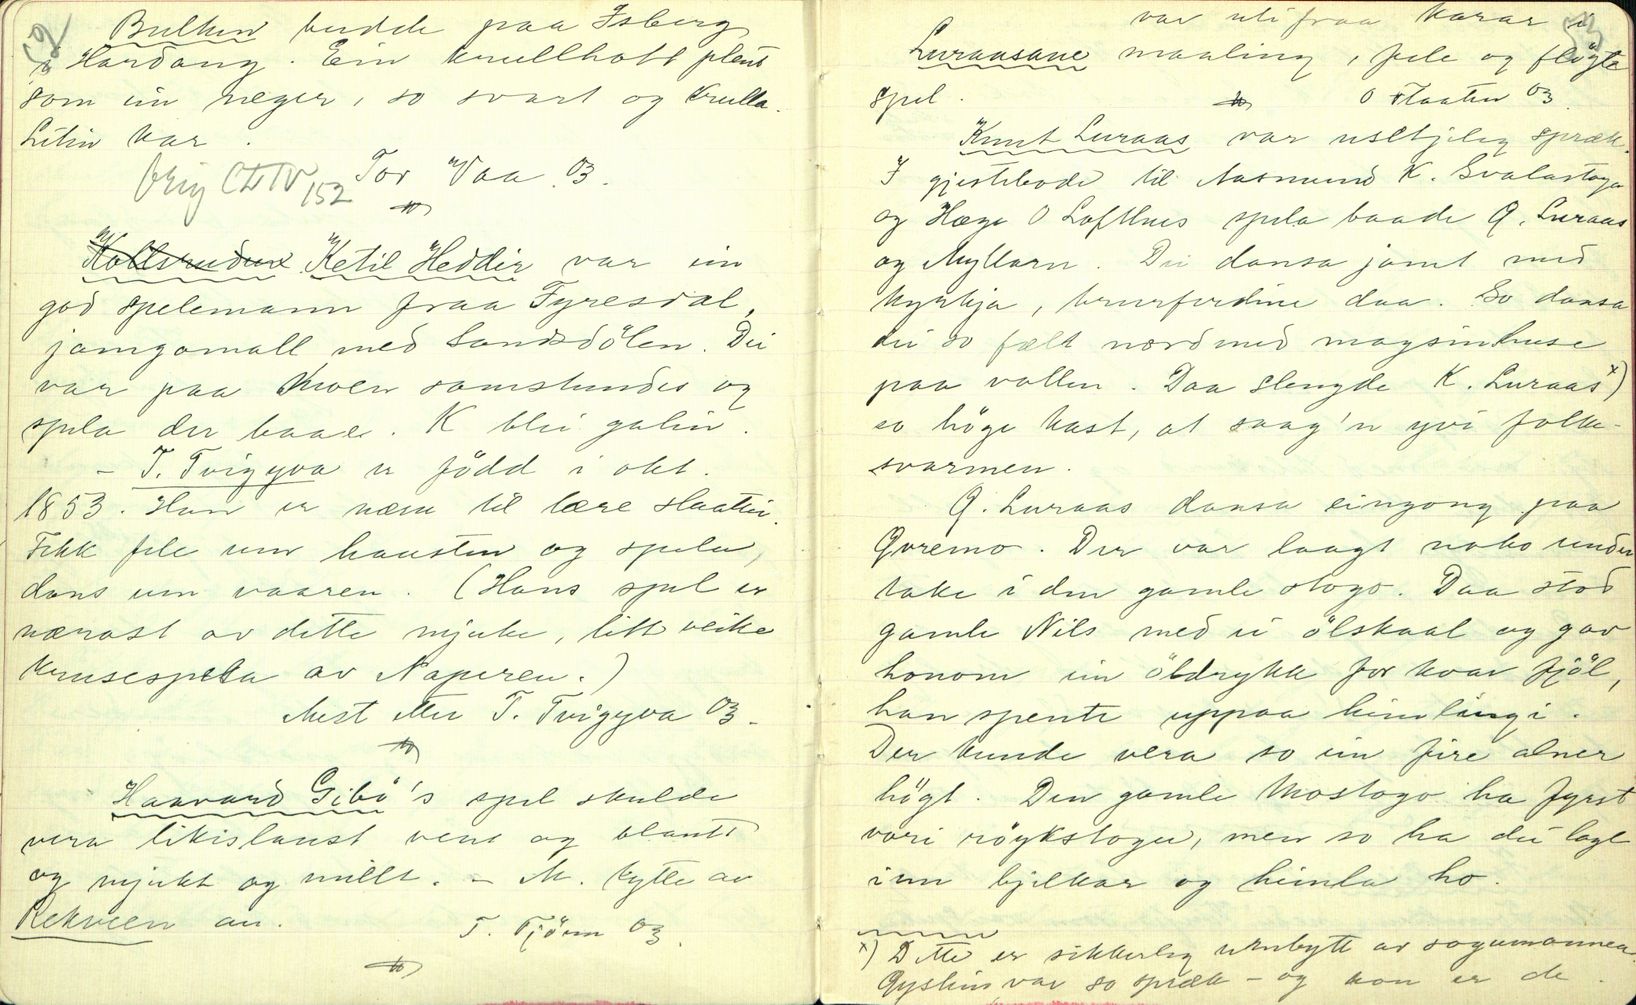 52
Bulken budde paa Isberg
i Hardang. Ein krullhatt plent
som ein neger, so svart og krulla.
Liten kar.
Orig CLIV 152 Tor Vaa 03.
Ketil Heddir var ein
god spelemann fraa Tyresdal,
jamgamall med Sandsdölen. Dei
var paa Moen samstundes og
spela der baae. K blei galin.
– T. Tvigyva er född i okt.
1853. Han er næm til lære slaattir.
Fekk fele um hausten og spela,
dans um vaaren. (Hans spel er
nærast av dette mjuke, litt veike
krusespela av Naperen.)
Mest etter T. Tvigyva 03.
Haavard Gibö's spel skulde
vera likislaust vent og blautt
og mjukt og millt. – M. kytte av
Rekveen an.
T. Fjörn 03.
53
var uli fraa karar i
Luraasane maaling, fele og fløgte
spel.
O Flaaten 03.
Knut Luraas var usktjeleg spræk.
I gjestebode til Aasmund K. Svalastoga
og Hæge O Lofthus spela baade Q. Luraas
og Myllarn. Dei dansa jamt med
kyrkja, brurferdine daa. So dansa
dei so fælt nord med magsinhuse
paa vollen. Daa slengde K. Luraas x)
so höge kast, at saag'n yvi folke-
svarmen.
Q. Luraas dansa eingong paa
Qvemo. Der var laagt noko under
take i den gamle stogo. Daa stod
gamle Nils med ei ölskaal og gav
honom ein öldrykk for kvar fjöl,
han spente uppaa himlingi.
Der kunde vera so ein fire alner
högt. Den gamle Mostogo ha fyrst
vori röykstogu, men so ha dei lagt
inn bjelkar og himla ho.
x) Dette er sikkerleg umbytt av sogumannen.
Qystein var so spræk – og kon er de